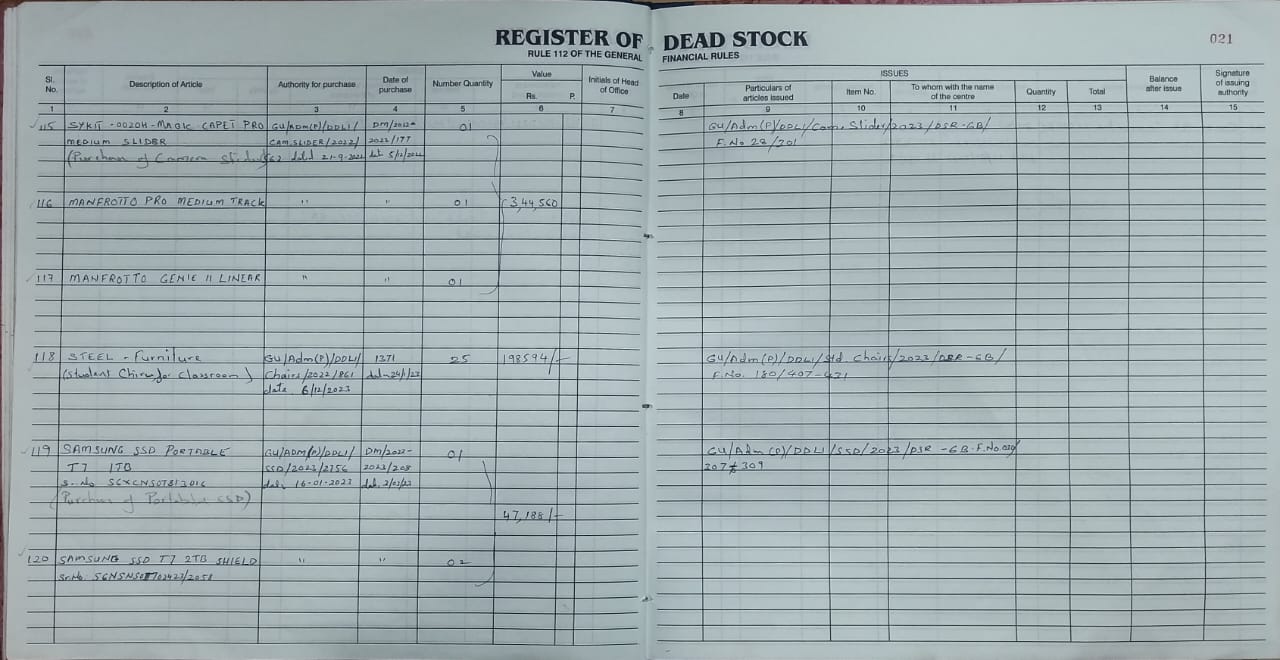 REGISTER OF DEAD STOCK
RULE 112 OF THE GENERAL FINANCIAL RULES
021
Sl. No. Description of Article Authority for purchase Date of purchase Number Quantity Value Rs. P. Initials of Head of Office
1 2 3 4 5 6 7
115 SYKIT-0020H-MAGIC CAPET PRO GU/ADM(P)/DDLI/ DM/2022- 01
MEDIUM SLIDER CAM.SLIDER/2022/ 2023/177
(Purchase of Camera Slider) dated 21-9-2022 dat 5/12/2022
116 MANFROTTO PRO MEDIUM TRACK " " 01 3,44,560
117 MANFROTTO GENIE II LINEAR " " 01
118 STEEL - Furniture GU/Adm(P)/DDLI/ 1371 25 198594/-
(Student Chirs for Classroom) Chairs/2022/861 dat-24/1/23
date 6/12/2023
119 SAMSUNG SSD PORTABLE GU/ADM(P)/DDLI/ DM/2022- 01
T7 1TB SSD/2023/2756 2023/208
S.No dat. 16-01-2023 dat. 2/02/23
(Purchase of Portable SSD)
47,188/-
120 SAMSUNG SSD T7 2TB SHIELD " " 02
Sr.No.
ISSUES
Date Particulars of articles issued Item No. To whom with the name of the centre Quantity Total Balance after issue Signature of issuing authority
8 9 10 11 12 13 14 15
GU/Adm(P)/DDLI/Cam. Slider/2023/DSR-GB/
F.No 28/201
GU/Adm(P)/DDLI/Std. Chairs/2023/DSR-GB/
F.No. 180/407-431
GU/Adm(P)/DDLI/SSD/2023/DSR-GB-F.No.
307 309